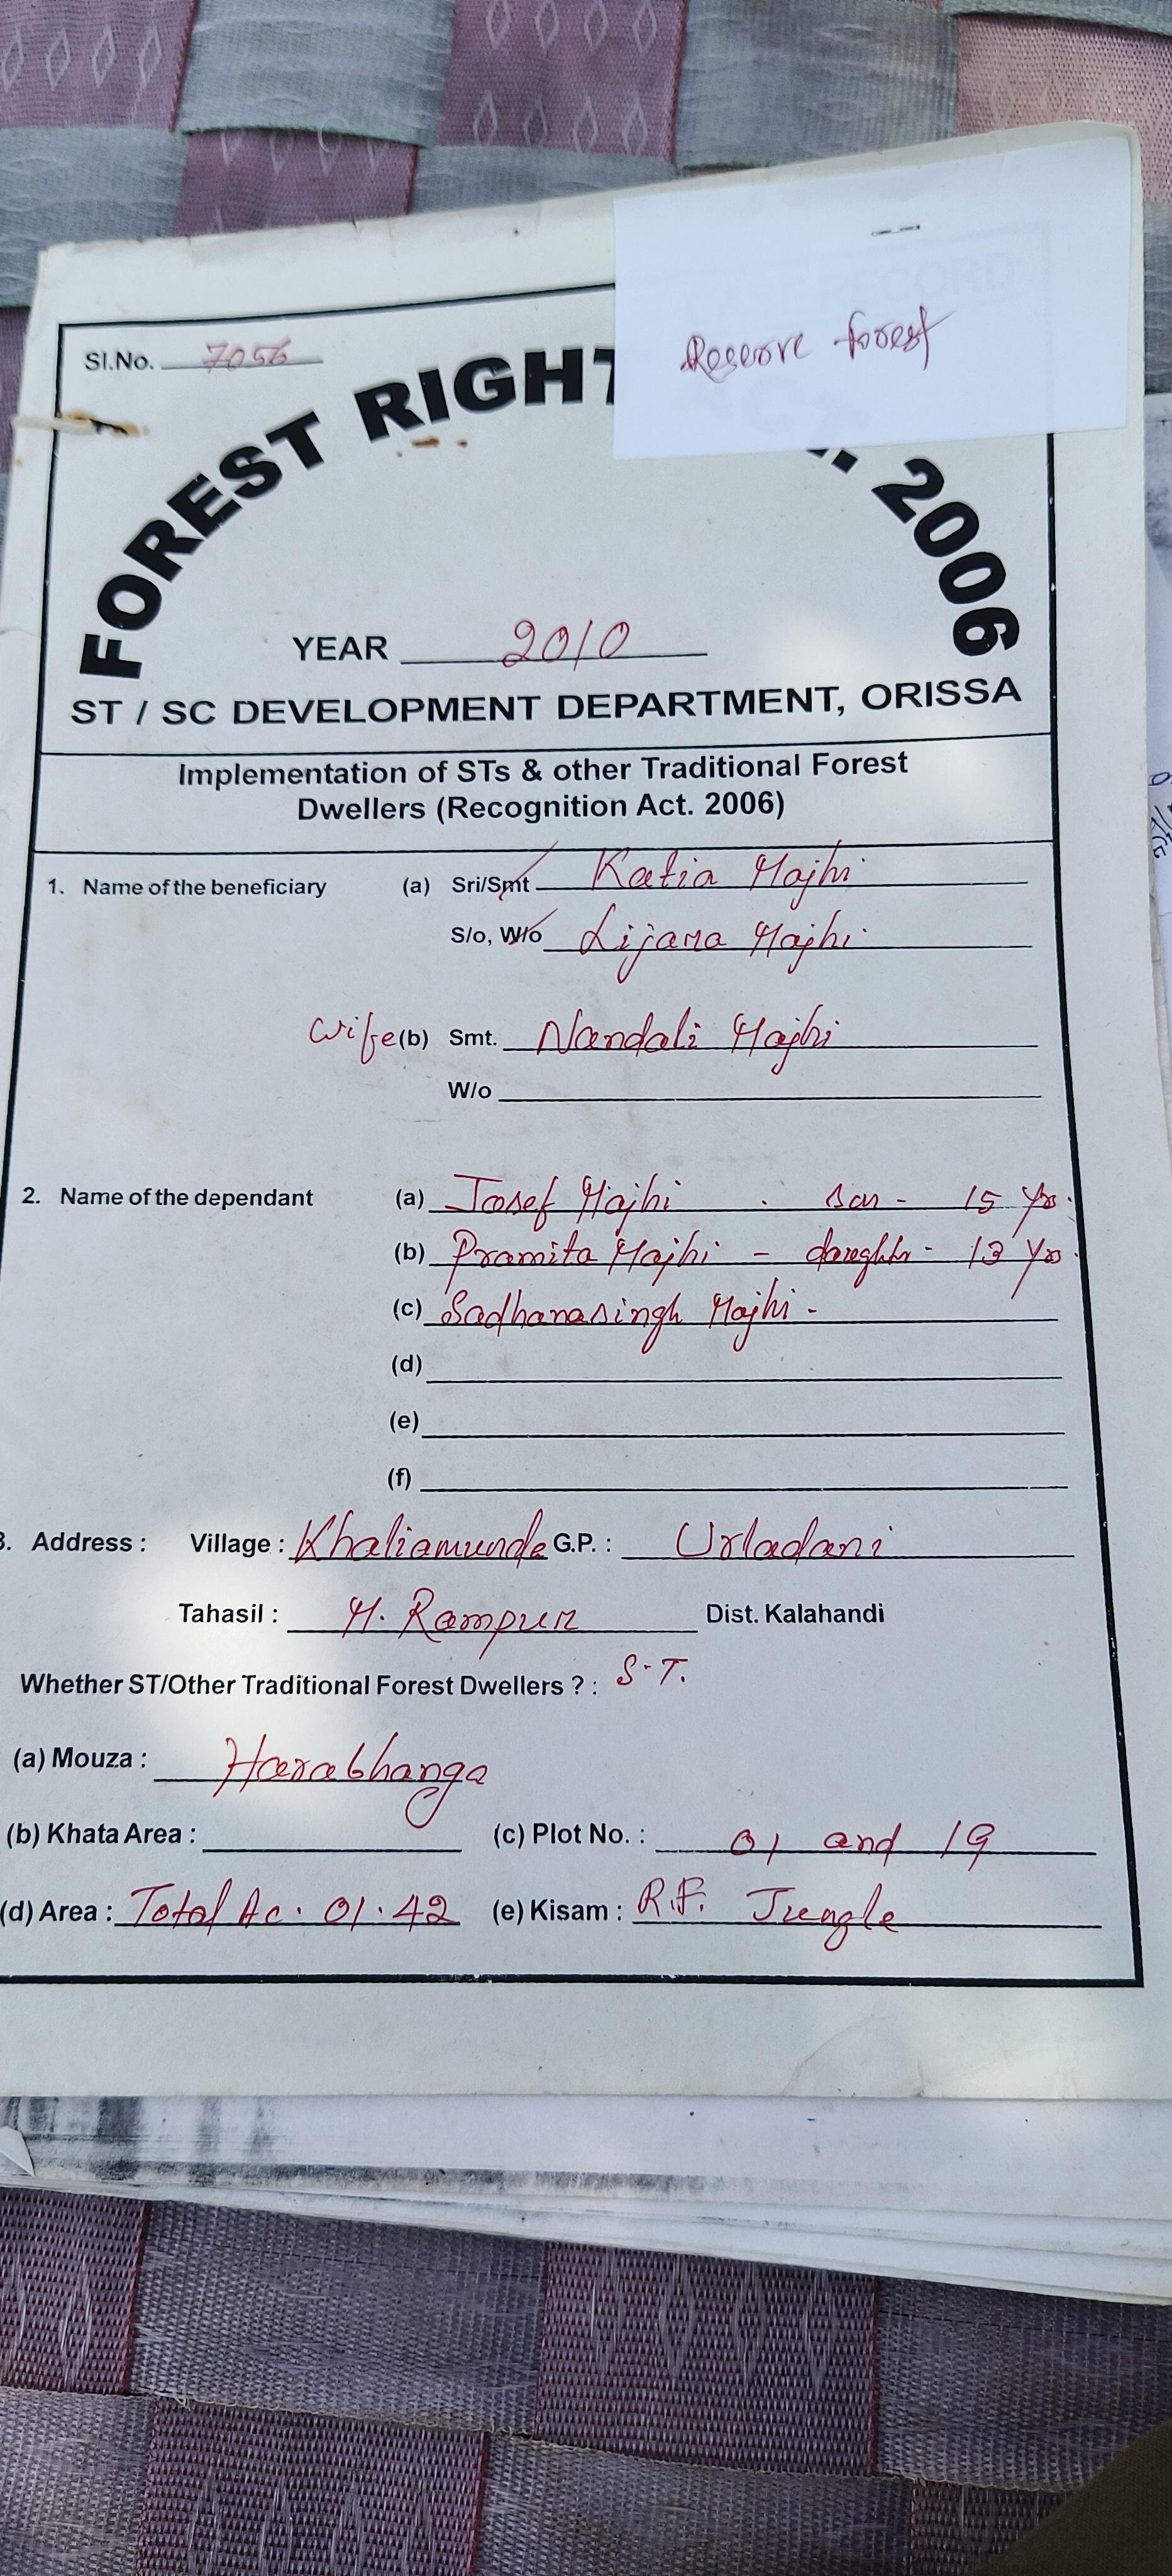 Reserve forest
Sl.No. 7056
FOREST RIGHT 2006
YEAR 2010
ST / SC DEVELOPMENT DEPARTMENT, ORISSA
Implementation of STs & other Traditional Forest
Dwellers (Recognition Act. 2006)
1. Name of the beneficiary (a) Sri/Smt Katia Majhi
S/o, W/o Lijana Majhi
Wife (b) Smt. Nandali Majhi
W/o
2. Name of the dependant (a) Josef Majhi - son - 15 Yrs.
(b) Pramita Majhi - daughtr - 13 Yrs.
(c) Sadhanasingh Majhi -
(d)
(e)
(f)
3. Address : Village : Khaliamunda G.P. : Urladani
Tahasil : M. Rampur Dist. Kalahandi
Whether ST/Other Traditional Forest Dwellers ? : S.T.
(a) Mouza : Harabhanga
(b) Khata Area : (c) Plot No. : 01 and 19
(d) Area : Total Ac. 01.42 (e) Kisam : R.F. Jungle